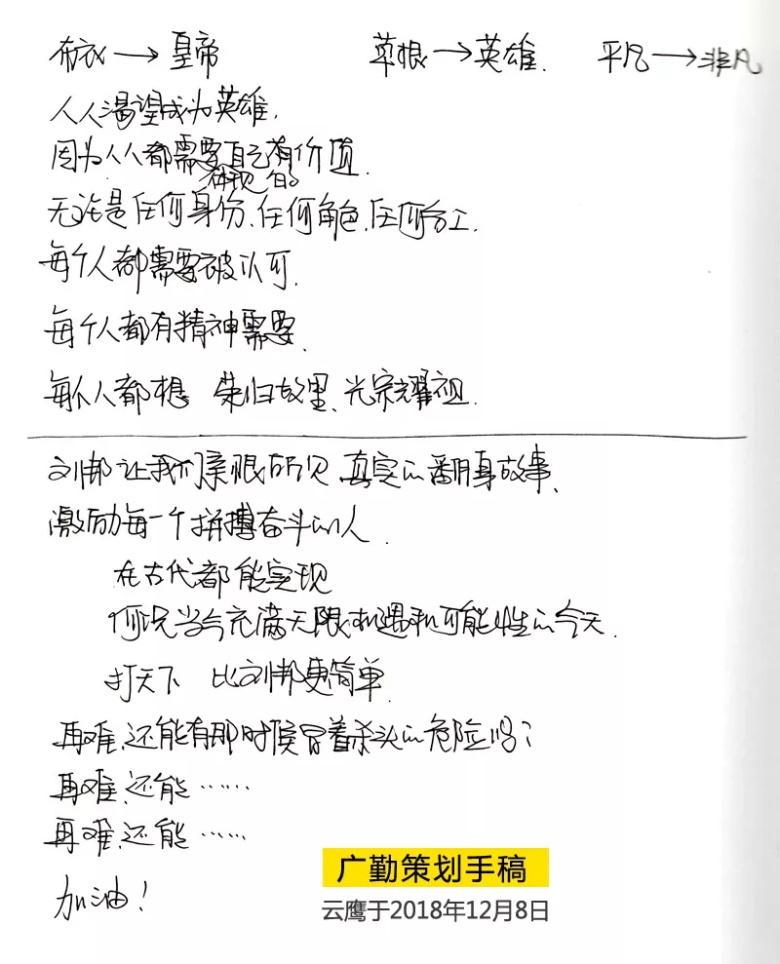 布衣→皇帝 草根→英雄. 平凡→非凡
人人渴望成为英雄.
因为人人都需要自己有价值.
体现自的
无论是任何身份、任何角色、任何分工.
每个人都需要被认可.
每个人都有精神需要.
每个人都想 荣归故里、光宗耀祖.
刘邦让我们亲眼所见、真实的翻身故事.
激励每一个拼搏奋斗的人.
在古代都能实现
何况当今充满无限机遇和可能性的今天.
打天下 比刘邦更简单.
再难、还能有那时候冒着杀头的危险吗?
再难、还能……
再难、还能……
加油!
广勤策划手稿
云鹰于2018年12月8日